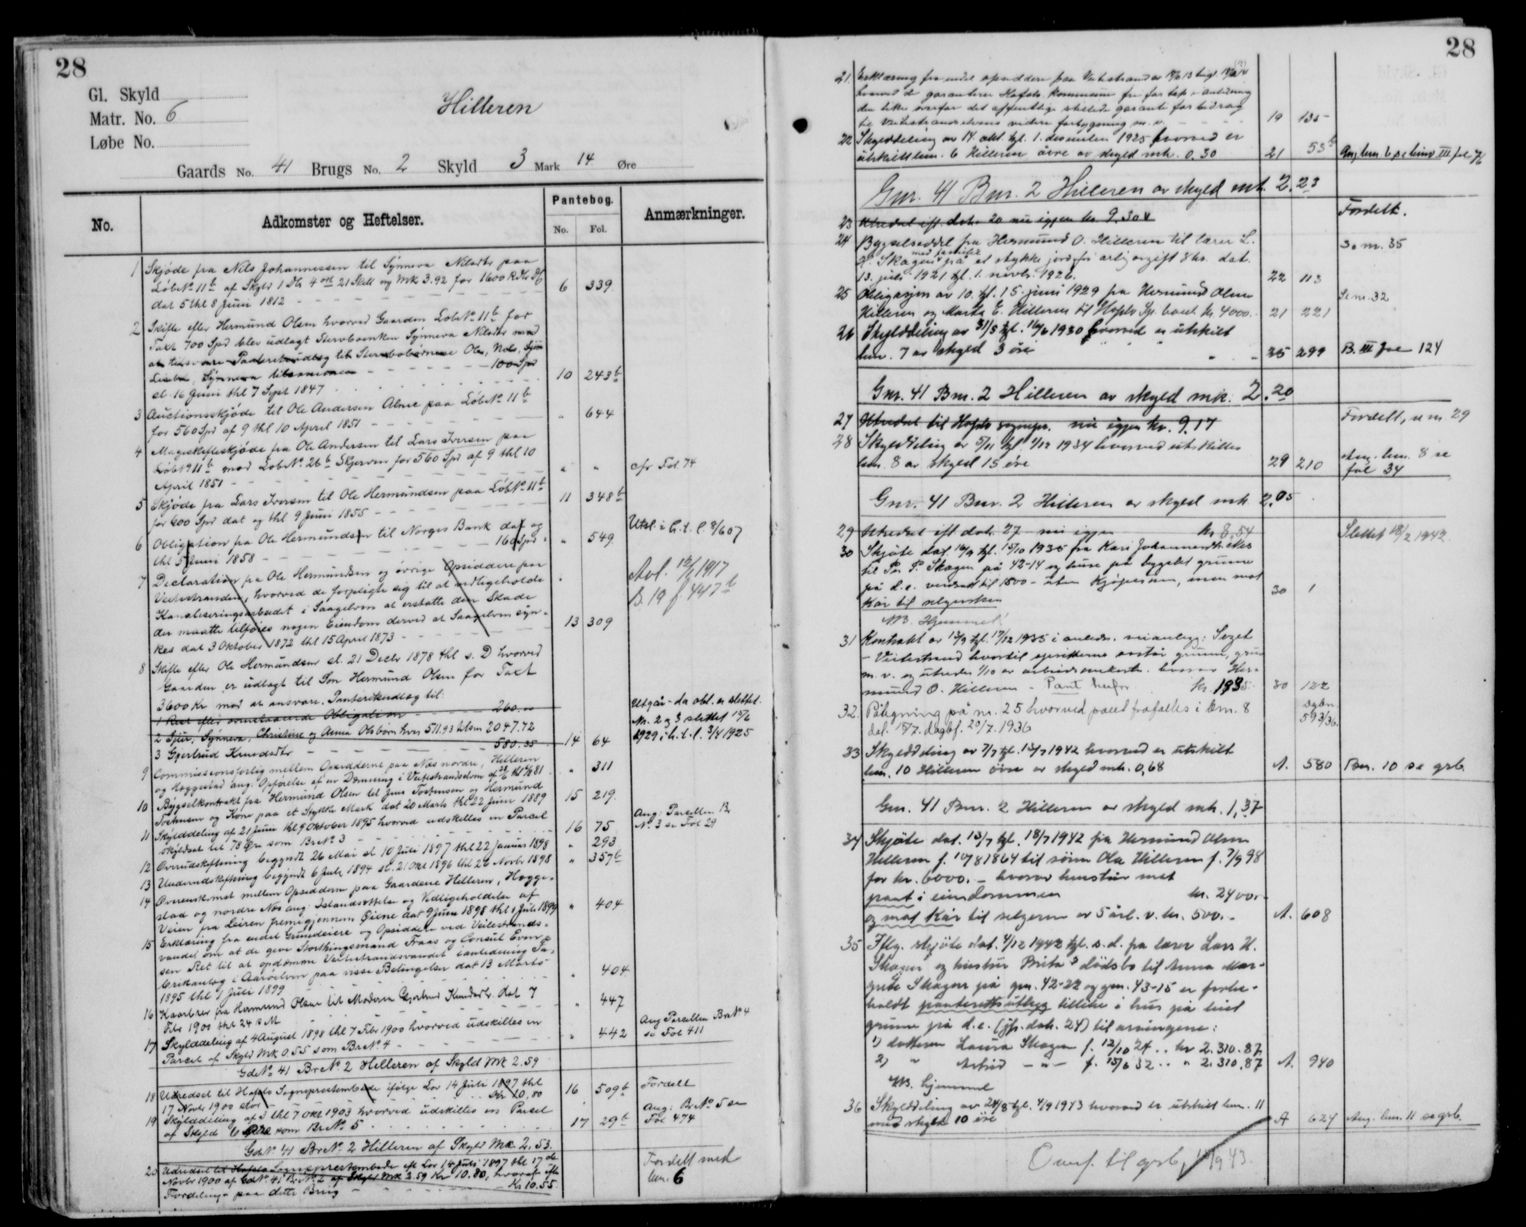 28
Gl. Skyld
Matr. No. 6
Løbe No.
Hilleren
Gaards No. 41 Brugs No. 2 Skyld 3 Mark 14 Øre
No.
Adkomster og Heftelser.
Pantebog.
No. Fol.
Anmærkninger.
1 Skjøde fra Nils Johannessen til Synneva Nilsdtr paa
LøbNo 11b af Skyld 1 Db 4 21 Skill og Mk 3.92 for 1600 R
dat 5 thl 8 Juni 1812 6 339
2 Skifte efter Hermund Olsen hvorved Gaarden LøbNo 11b for
Taxt 700 Spd blev udlagt Stervboenken Synneva Nilsdtr mod
100 Spd
sl. 16 Juni thl 7 Sept 1847 10 243b
3 Auctionsskjøde til Ole Andersen Alme paa LøbNo 11b
for 560 Spd af 9 thl 10 April 1851 " 644
4 Mageskifteskjøde fra Ole Andersen til Lars Iversen paa
LøbNo 11b mod LøbNo 26b Skjerven for 560 Spd af 9 thl 10
April 1851 " " cfr Fol. 74
5 Skjøde fra Lars Iversen til Ole Hermundsen paa LøbNo 11b
for 600 Spd dat og thl 9 Juni 1855 11 348b
6 Obligation fra Ole Hermundsen til Norges Bank dat og
thl 5 Juni 1858 160 Spd " 549
7 Declaration fra Ole Hermundsen og øvrige Opsiddere paa
Veitestranden, hvorved de forpligte sig til at vedligeholde
Kanaliseringsarbeidet i Saagelven at erstatte den Skade
der maatte tilføies nogen Eiendom derved at Saagelven syn-
kes dat 3 Oktober 1872 thl 15 April 1873 13 309
Avl. 12/2 1917
B. 19 f 447b
8 Skifte efter Ole Hermundsen sl. 21 Decbr 1878 thl s. D hvorved
Gaarden er udlagt til Søn Hermund Olsen for Taxt
3600 Kr mod at ansvare Panterikudlæg til:
260.00
2 Sjur, Synneva, Christine og Anna Olsbørn hver 511.93 tilsm 2047.72
3 Gjertrud Knudsdtr 580.35 14 64
Utgår - da obl. er slettet.
Nr. 2 og 3 slettet
9 Commissionsforlig mellem Opsidderne paa Næs nordre, Hilleren
og Heggestad ang. Opførelse af en Dæmning i Veitestrandselven " 311
10 Bygselkontrakt fra Hermund Olsen til Jens Torstensen og Hermund
Torstensen og Kone paa et Stykke Mark dat 20 Marts thl 22 Juni 1889 15 219
11 Skylddeling af 21 Juni thl 9 Oktober 1895 hvorved udskilles en Parcel
skyldsat til 78 Øre som BrNo 3 16 75
Ang: Parcellen Br
No. 3 se Fol 29
12 Overudskiftning begyndt 26 Mai sl 10 Juli 1897 thl 22 Januar 1898 " 293
13 Underudskiftning begyndt 6 Juli 1894 sl. 21 Okt 1896 thl 26 Novb. 1898 " 357b
14 Overenskomst mellem Opsidderne paa Gaardene Hilleren, Hegge-
stad og nordre Nes ang. Istandsættelse og Vedligeholdelse af
Veien fra Leiren fremigjennem Øiene dat 9 Juni 1898 thl 1 Juli 1899 " 404
15 Erklæring fra endel Grundeiere og Opsiddere ved Veitestrands-
vandet om at de giver Storthingsmand Fraas og Consul
sen Ret til at opdæmme Veitestrandsvandet i anledning
brikanlæg i Aarøelven paa visse Betingelser dat 13 Marts
1895 thl 1 Juli 1899 " 404
16 Kaarbrev fra Hermund Olsen til Moderen Gjertrud Knudsdtr dat 7
Febr 1900 thl 24 s. M " 447
17 Skylddeling af 4 August 1898 thl 7 Febr 1900 hvorved udskilles en
Parcel af Skyld Mk 0.55 som BrNo 4 " 442
Ang Parcellen BrNo 4
se Fol 411
GdNo 41 BrNo 2 Hilleren af Skyld Mk 2.59
18 Udredsel til Hafslo Sogneprestembede ifølge Lov 14 Juli 1897 thl
17 Novbr 1900 stor Kr 10,80 16 509b Fordelt
19 Skylddeling af 5 thl 7 Okt 1903 hvorved udskilles en Parcel
af Skyld 6 Øre som BrNo 5 17 29b
Ang: BrNo 5 se
Fol 474
GdNo 41 BrNo 2 Hilleren af Skyld Mk. 2.53
20 Udredsel til Hafslo Sogneprestembede eft Lov 14 Juli 1897 thl 17 de
Novbr 1900 af GdNo 41 BrNo 2 af Skyld Mk 2.59 Kr 10.80, hvoraf efter
Fordeling paa dette Brug Kr 10.55
Fordelt med
bnr. 6
28
21 Erklæring fra endel opsiddere paa Veitestranden
hvorved de garanterer Hafslo kommune fri for tap i anledning
den like overfor det offentlige stillede garanti for bidrag
til Veitestrandsveiens videre fortsygning m. v. 19 135
22 Skylddeling av 14 okt tgl. 1. desember 1925 hvorved er
utskilt bnr. 6 Hilleren øvre av skyld mk. 0.30 21 53b Ang. bnr. 6 se bind III fol
Gnr. 41 Bnr. 2 Hilleren av skyld mk. 2.23
23 Utredsel ift. dok. 20 nu igjen kr. 9,304 Fordelt.
24 Bygselseddel fra Hermund O. Hilleren til lærer L.
O. Skagen på et stykke jord for årlig avgift 8 kr. dat.
13. juli 1921 tgl. 1. novbr. 1926. 22 113 Se nr. 35
25 Obligasjon av 10. tgl. 15. juni 1929 fra Hermund Olsen
Hilleren og Marta E. Hilleren til Hafslo Sp. bank kr. 4000.- 21 221 Se nr. 32
26 Skylddeling av 31/5 tgl. 16/6 1930 hvorved er utskilt
bnr. 7 av skyld 3 øre 25 299 B. III fol 124
Gnr. 41 Bnr. 2 Hilleren av skyld mk: 2.20
27 Utredsel til Hafslo sognepr. nu igjen kr. 9.17 Fordelt, se nr 29
28 Skylddeling av tgl 1934 hvorved utskilles
bnr. 8 av skyld 15 øre 29 210 Ang. bnr. 8 se
fol 34
Gnr. 41 Bnr. 2 Hilleren av skyld mk 2,05
29 Utredsel ift dok. 27 nu igjen kr 8,54 Slettet 18/2 1942
30 Skjøte dat 14/9 tgl. 15/10 1935 fra Kari Johannesdtr
til Per P. Skagen på 42-14 og huse på bygslet grunn
på d.e. verdsat til 1500 - uten kjøpesum, men mot
kår til selgersken 30 1
NB. Hjemmel
31 Kontrakt av 13/9 tgl. 17/12 1935 i anledn. veianlegg: Seget
- Veitestrand hvortil opsitterne avstår grunn, grus
m. v. og utreder 1/10 av arbeidsomkostn. hvorav Her-
mund O. Hilleren - Pant herfor kr. 193 30 122
32. Påtegning på nr. 25 hvorved pant frafalles i bnr. 8
dat. 15/7. dagbf. 20/7. 1936 dgbn
593/36
33 Skylddeling av 7/7 tgl. 15/7 1942 hvorved er utskilt
bnr. 10 Hilleren øvre av skyld mk. 0,68 A. 580 Bnr. 10 se grb.
Gnr. 41 Bnr. 2 Hilleren av skyld mk. 1,37
34 Skjøte dat. 13/7 tgl. 18/7 1942 fra Hermund Olsen
Hilleren f. 10/8 1864 til sønn Ola Hilleren f. 7/9 98
for kr. 6000.- hvorav hustru met
pant i eiendommen kr. 2400.-
og mot kår til selgeren av 5 årl. v. kr. 500.- A. 608
35 Iflg. skjøte dat. 4/12 1942 tgl. s.d. fra lærer Lars O.
Skagen og hustru Brita's dødsbo til Anna Mar-
grete Skagen på gnr. 42-22 og gnr. 43-15 er forbe-
holdt panterettsutlegg tillike i hus på leiet
grunn på d.e. (jfr. dok. 24) til arvingene:
1) datteren Laura Skagen f. 12/10 24 .. kr 2.310.87
2) " Astrid -"- f. 15/6 32 .. " 2.310,87 A. 940
NB. hjemmel
36 Skylddeling av 28/8 tgl. 4/9 1943 hvorved er utskilt bnr. 11
med skyld 10 øre A 627 Ang. bnr. 11 se grb.
Overf. til grb. 10/9 43.